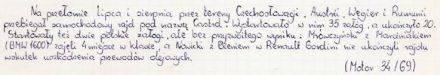 Na przełomie lipca i sierpnia przez tereny Czechosłowacji, Austrii, Węgier i Rumunii
przebiegał samochodowy rajd pod nazwą Castrol. Wystartowało w nim 35 załóg, a ukończyło 20.
Startowały też dwie polskie załogi, ale bez przyzwoitego wyniku: Mrówczyński z Marciniakiem
(BMW 1600) zajęli 4 miejsce w klasie, a Nowicki z Bieniem w Renault Gordini nie ukończyli rajdu
wskutek uszkodzenia przewodów olejowych.
(Motor 34/69)